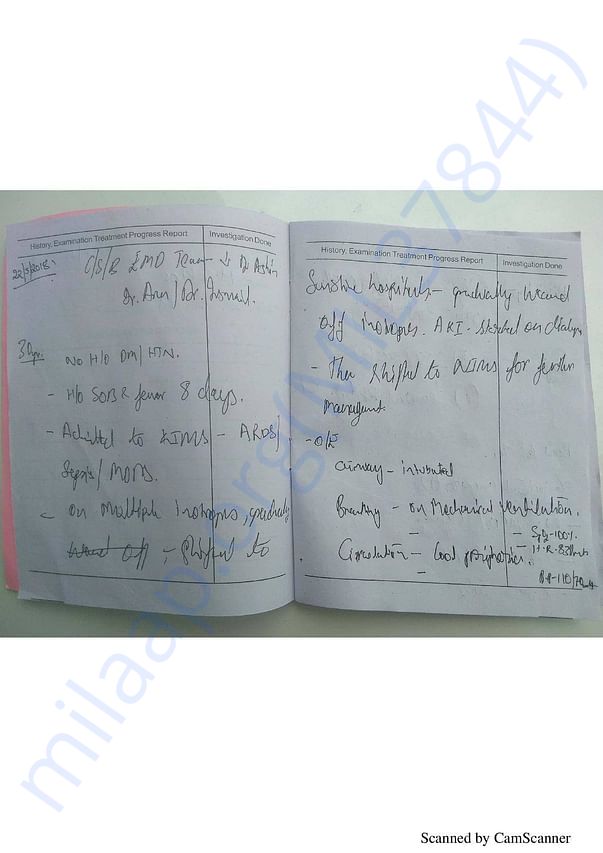 History, Examination Treatment Progress Report
Investigation Done
22/5/2018
C/S/B EMD Team
Dr. Arun / Dr. Ismail.
No H/o DM/HTN.
- H/o SOB & fever 8 days.
- Admitted to KIMS - ARDS/
Sepsis/ MODS.
- on multiple inotropes, gradually
off, shifted to
History, Examination Treatment Progress Report
Investigation Done
Sunshine hospitals - gradually weaned
off inotropes. AKI - started on dialysis
- Then shifted to NIMS for further
management.
- O/E
Airway - intubated
Breathing - on Mechanical Ventilation.
- SpO2-100%.
Circulation - Cool peripheries.
- H.R-82/min
B.P-110/70
milaap.org(MIL27844)
Scanned by CamScanner